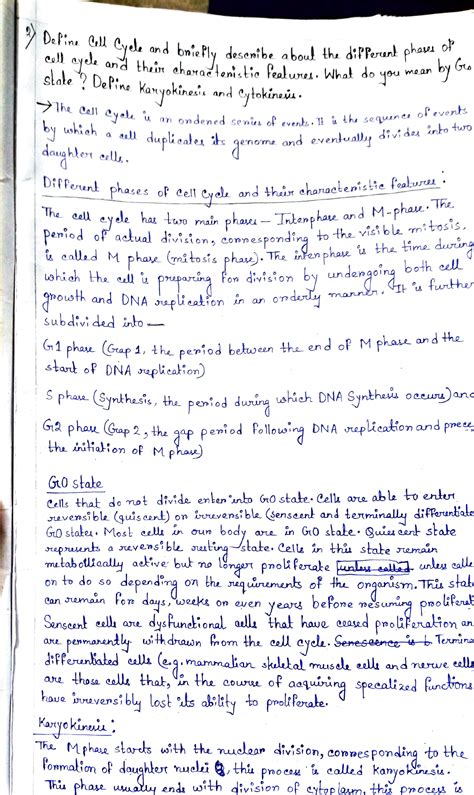 2) Define Cell Cycle and briefly describe about the different phases of
cell cycle and their characteristic features. What do you mean by G0
state? Define Karyokinesis and Cytokinesis.
→ The cell cycle is an ordered series of events. It is the sequence of events
by which a cell duplicates its genome and eventually divides into two
daughter cells.
Different phases of cell cycle and their characteristic features:
The cell cycle has two main phases - Interphase and M-phase. The
period of actual division, corresponding to the visible mitosis,
is called M phase (mitosis phase). The interphase is the time during
which the cell is preparing for division by undergoing both cell
growth and DNA replication in an orderly manner. It is further
subdivided into —
G1 phase (Gap 1, the period between the end of M phase and the
start of DNA replication)
S phase (Synthesis, the period during which DNA Synthesis occurs) and
G2 phase (Gap 2, the gap period following DNA replication and prece
the initiation of M phase)
G0 state
Cells that do not divide enter into G0 state. Cells are able to enter
reversible (quiscent) or irreversible (senscent and terminally differentiate
G0 states. Most cells in our body are in G0 state. Quiescent state
represents a reversible resting state. Cells in this state remain
metabolically active but no longer proliferate unless called unless calle
on to do so depending on the requirements of the organism. This stat
can remain for days, weeks or even years before resuming proliferat
Senscent cells are dysfunctional cells that have ceased proliferation an
are permanently withdrawn from the cell cycle. Senescence is Termina
differentiated cells (e.g. mammalian skeletal muscle cells and nerve cells
are those cells that, in the course of acquiring specalized functions
have irreversibly lost its ability to proliferate.
Karyokinesis:
The M phase starts with the nuclear division, corresponding to the
formation of daughter nuclei, this process is called karyokinesis.
This phase usually ends with division of cytoplasm, this process is